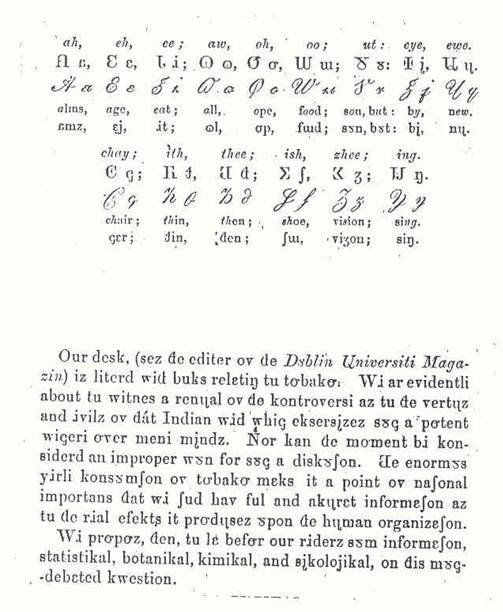 ah, eh, ee; aw, oh, oo; ut: eye, ewe.
alms, age, eat; all, ope, food; son, but: by, new.
ɛmz, ɛj, ɨt; ɵl, σp, fɯd; sɤn, bɤt: bį, nų.
chay; ith, thee; ish, zhee; ing.
Ꞓ ɕ; Ʞ ŧ, Ɑ đ; Σ ʃ, Ʒ ʒ; Ŋ ŋ.
chair; thin, then; shoe, vision; sing.
ɕɛr; ŧin, đen; ʃɯ, viʒon; siŋ.
Our desk, (sez đe editer ov đe Dɤblin Ųniversiti Maga-
zin) iz literd wiđ buks reletiŋ tu tσbakσ. Wɨ ar evidentli
about tu witnes a renųal ov đe kontroversi az tu đe vertųz
and ɨvilz ov đat Indian wɨd whiɕ eksersįzez sɤɕ a potent
wiɕeri σver meni mįndz. Nor kan đe mσment bɨ kon-
siderd an improper wɤn for sɤɕ a diskɤʃon. Đe enormɤs
yɨrli konsɤmʃon ov tσbakσ meks it a point ov naʃonal
importans đat wɨ ʃud hav ful and akųret informeʃon az
tu đe rɨal efekts it prodųsez ɤpon đe hųman organizeʃon.
Wɨ prσpσz, đen, tu le befσr our rɨderz sɤm informeʃon,
statistikal, botanikal, kimikal, and sįkolojikal, on đis mɤɕ-
-debeted kwestion.